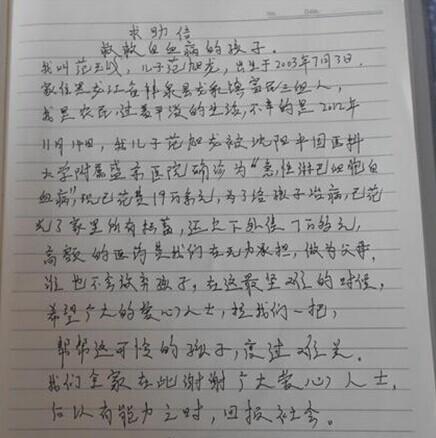 No. Date.
求助信
救救白血病的孩子.
我叫范玉成,儿子范旭龙,出生于2003年7月3日.
家住黑龙江省林泉县龙家镇富民三组人,
我是农民,过着平淡的生活,不幸的是2012年
11月14日,我儿子范旭龙被沈阳中国医科
大学附属盛京医院确诊为“急性淋巴细胞白
血病”,现已花费19万多元,为了给孩子治病,已花
光了家里所有积蓄,还欠下外债7万多元,
高额的医药费我们在无力承担,做为父母,
谁也不会放弃孩子,在这最坚难的时候,
希望广大的爱心人士,拉我们一把,
帮帮这可怜的孩子,度过难关.
我们全家在此谢谢广大爱心人士,
后以有能力之时,回报社会。